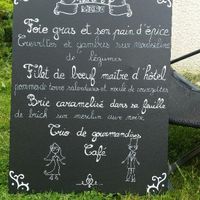 MENU
Foie gras et son pain d'épice
Crevettes et gambas sur mousseline
de légumes
Filet de bœuf maître d'hôtel
pomme de terre salardaises et roulé de courgettes
Brie caramélisé dans sa feuille
de brick sur merlin aux noix
Trio de gourmandises
Café